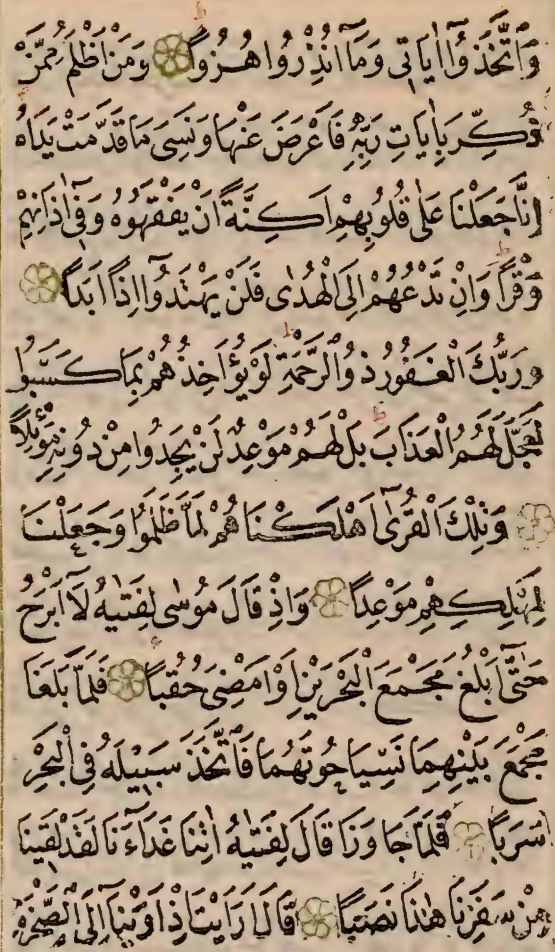 وَاتَّخَذُٓوا اٰيَاتٖى وَمَٓا اُنْذِرُوا هُزُوًا وَمَنْ اَظْلَمُ مِمَّنْ
ذُكِّرَ بِاٰيَاتِ رَبِّهٖ فَاَعْرَضَ عَنْهَا وَنَسِىَ مَا قَدَّمَتْ يَدَاهُ
اِنَّا جَعَلْنَا عَلٰى قُلُوبِهِمْ اَكِنَّةً اَنْ يَفْقَهُوهُ وَفٖٓى اٰذَانِهِمْ
وَقْرًا وَاِنْ تَدْعُهُمْ اِلَى الْهُدٰى فَلَنْ يَهْتَدُٓوا اِذًا اَبَدًا
وَرَبُّكَ الْغَفُورُ ذُو الرَّحْمَةِ لَوْ يُؤَاخِذُهُمْ بِمَا كَسَبُوا
لَعَجَّلَ لَهُمُ الْعَذَابَ بَلْ لَهُمْ مَوْعِدٌ لَنْ يَجِدُوا مِنْ دُونِهٖ مَوْئِلًا
وَتِلْكَ الْقُرٰٓى اَهْلَكْنَاهُمْ لَمَّا ظَلَمُوا وَجَعَلْنَا
لِمَهْلِكِهِمْ مَوْعِدًا وَاِذْ قَالَ مُوسٰى لِفَتٰيهُ لَٓا اَبْرَحُ
حَتّٰٓى اَبْلُغَ مَجْمَعَ الْبَحْرَيْنِ اَوْ اَمْضِىَ حُقُبًا فَلَمَّا بَلَغَا
مَجْمَعَ بَيْنِهِمَا نَسِيَا حُوتَهُمَا فَاتَّخَذَ سَبٖيلَهُ فِى الْبَحْرِ
سَرَبًا فَلَمَّا جَاوَزَا قَالَ لِفَتٰيهُ اٰتِنَا غَدَٓاءَنَا لَقَدْ لَقٖينَا
مِنْ سَفَرِنَا هٰذَا نَصَبًا قَالَ اَرَاَيْتَ اِذْ اَوَيْنَٓا اِلَى الصَّخْرَةِ